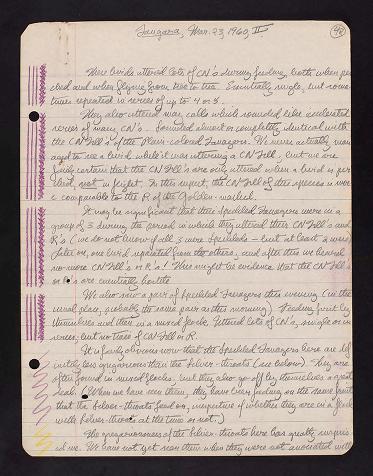 Tanagers, Mar. 23, 1960, II
98
These birds uttered lots of CN's during feeding, both when per
ched and when flying from tree to tree. Essentially single, but some
times repeated in series of up to 4 or 5.
They also uttered many calls which sounded like accelerated
series of many CN's. Sounded almost or completely identical with
the CN Trill's of the Plain-colored Tanagers. We never actually man
aged to see a bird while it was uttering a CN Trill, but we are
fairly certain that the CN Trill's are only uttered when a bird is per
ched, not in flight. In this respect, the CN Trill of this species is mor
e comparable to the R of the Golden-masked.
It may be significant that these Speckled Tanagers were in a
group of 3 during the period in which they uttered their CN Trill's and
R's (we do not know if all 3 were Speckleds - but at least 2 were)
Later on, one bird separated from the others, and after this we heard
no more CN Trill's or R's! This might be evidence that the CN Trill's
or R's are essentially hostile
We also saw a pair of Speckled Tanagers this evening (in the
usual place, probably the same pair as this morning). Feeding first by
themselves and then in a mixed flock. Uttered lots of CN's, single or in
series; but no trace of CN Trill or R.
It is fairly obvious now that the Speckled Tanagers here are def
initely less gregarious than the Silver-throats (see below). They are
often found in mixed flocks, but they also go off by themselves a great
deal. (When we have seen them, they have been feeding on the same plants
that the Silver-throats feed on, irrespective of whether they are in a flock
with Silver-throats at the time or not.)
The gregariousness of the Silver-throats here has greatly surpris
ed me. We have not yet seen them when they were not associated with